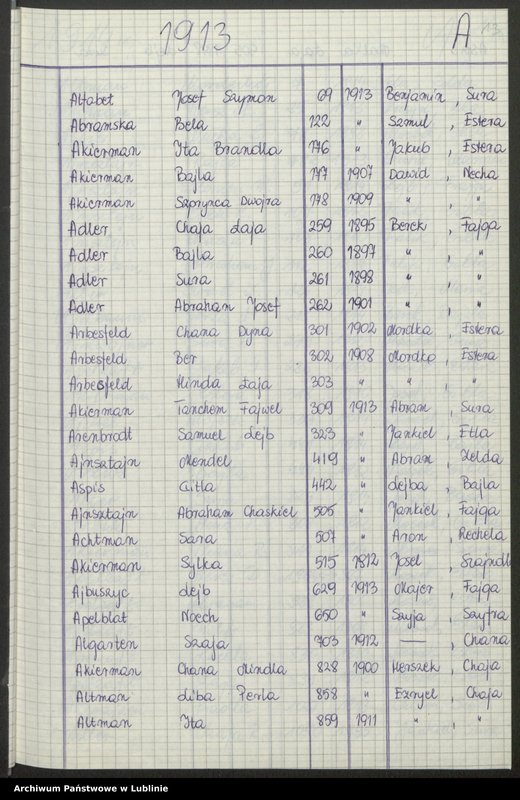 1913 A 13
Alfabet Josef Szymon 69 1913 Benjamin, Sura
Abramska Bela 122 " Szmul, Estera
Akierman Ita Brandla 176 " Jakub, Estera
Akierman Bajla 177 1907 Dawid, Necha
Akierman Szprynca Dwojra 178 1909 " , "
Adler Chaja Łaja 259 1895 Berek, Fajga
Adler Bajla 260 1897 " , "
Adler Sura 261 1898 " , "
Adler Abraham Josef 262 1901 " , "
Arbesfeld Chana Dyna 301 1902 Mordka, Estera
Arbesfeld Ber 302 1908 Mordko, Estera
Arbesfeld Hinda Łaja 303 " " , "
Akierman Tanchem Fajwel 309 1913 Abram, Sura
Arenbrodt Samuel Lejb 323 " Jankiel, Etla
Ajnsztajn Mendel 419 " Abram, Zelda
Aspis Gitla 442 " Lejba, Bajla
Ajnsztajn Abraham Chaskiel 505 " Jankiel, Fajga
Achtman Sara 507 " Aron, Rechela
Akierman Sylka 515 1812 Josel, Szajndl
Ajbuszyc Lejb 629 1913 Majer, Fajga
Apelblat Noech 650 " Szyja, Szyfra
Algarten Szaja 703 1912 — , Chana
Akierman Chana Mindla 828 1900 Herszek, Chaja
Altman Liba Perla 858 " Eznyel, Chaja
Altman Ita 859 1911 " , "
Archiwum Państwowe w Lublinie